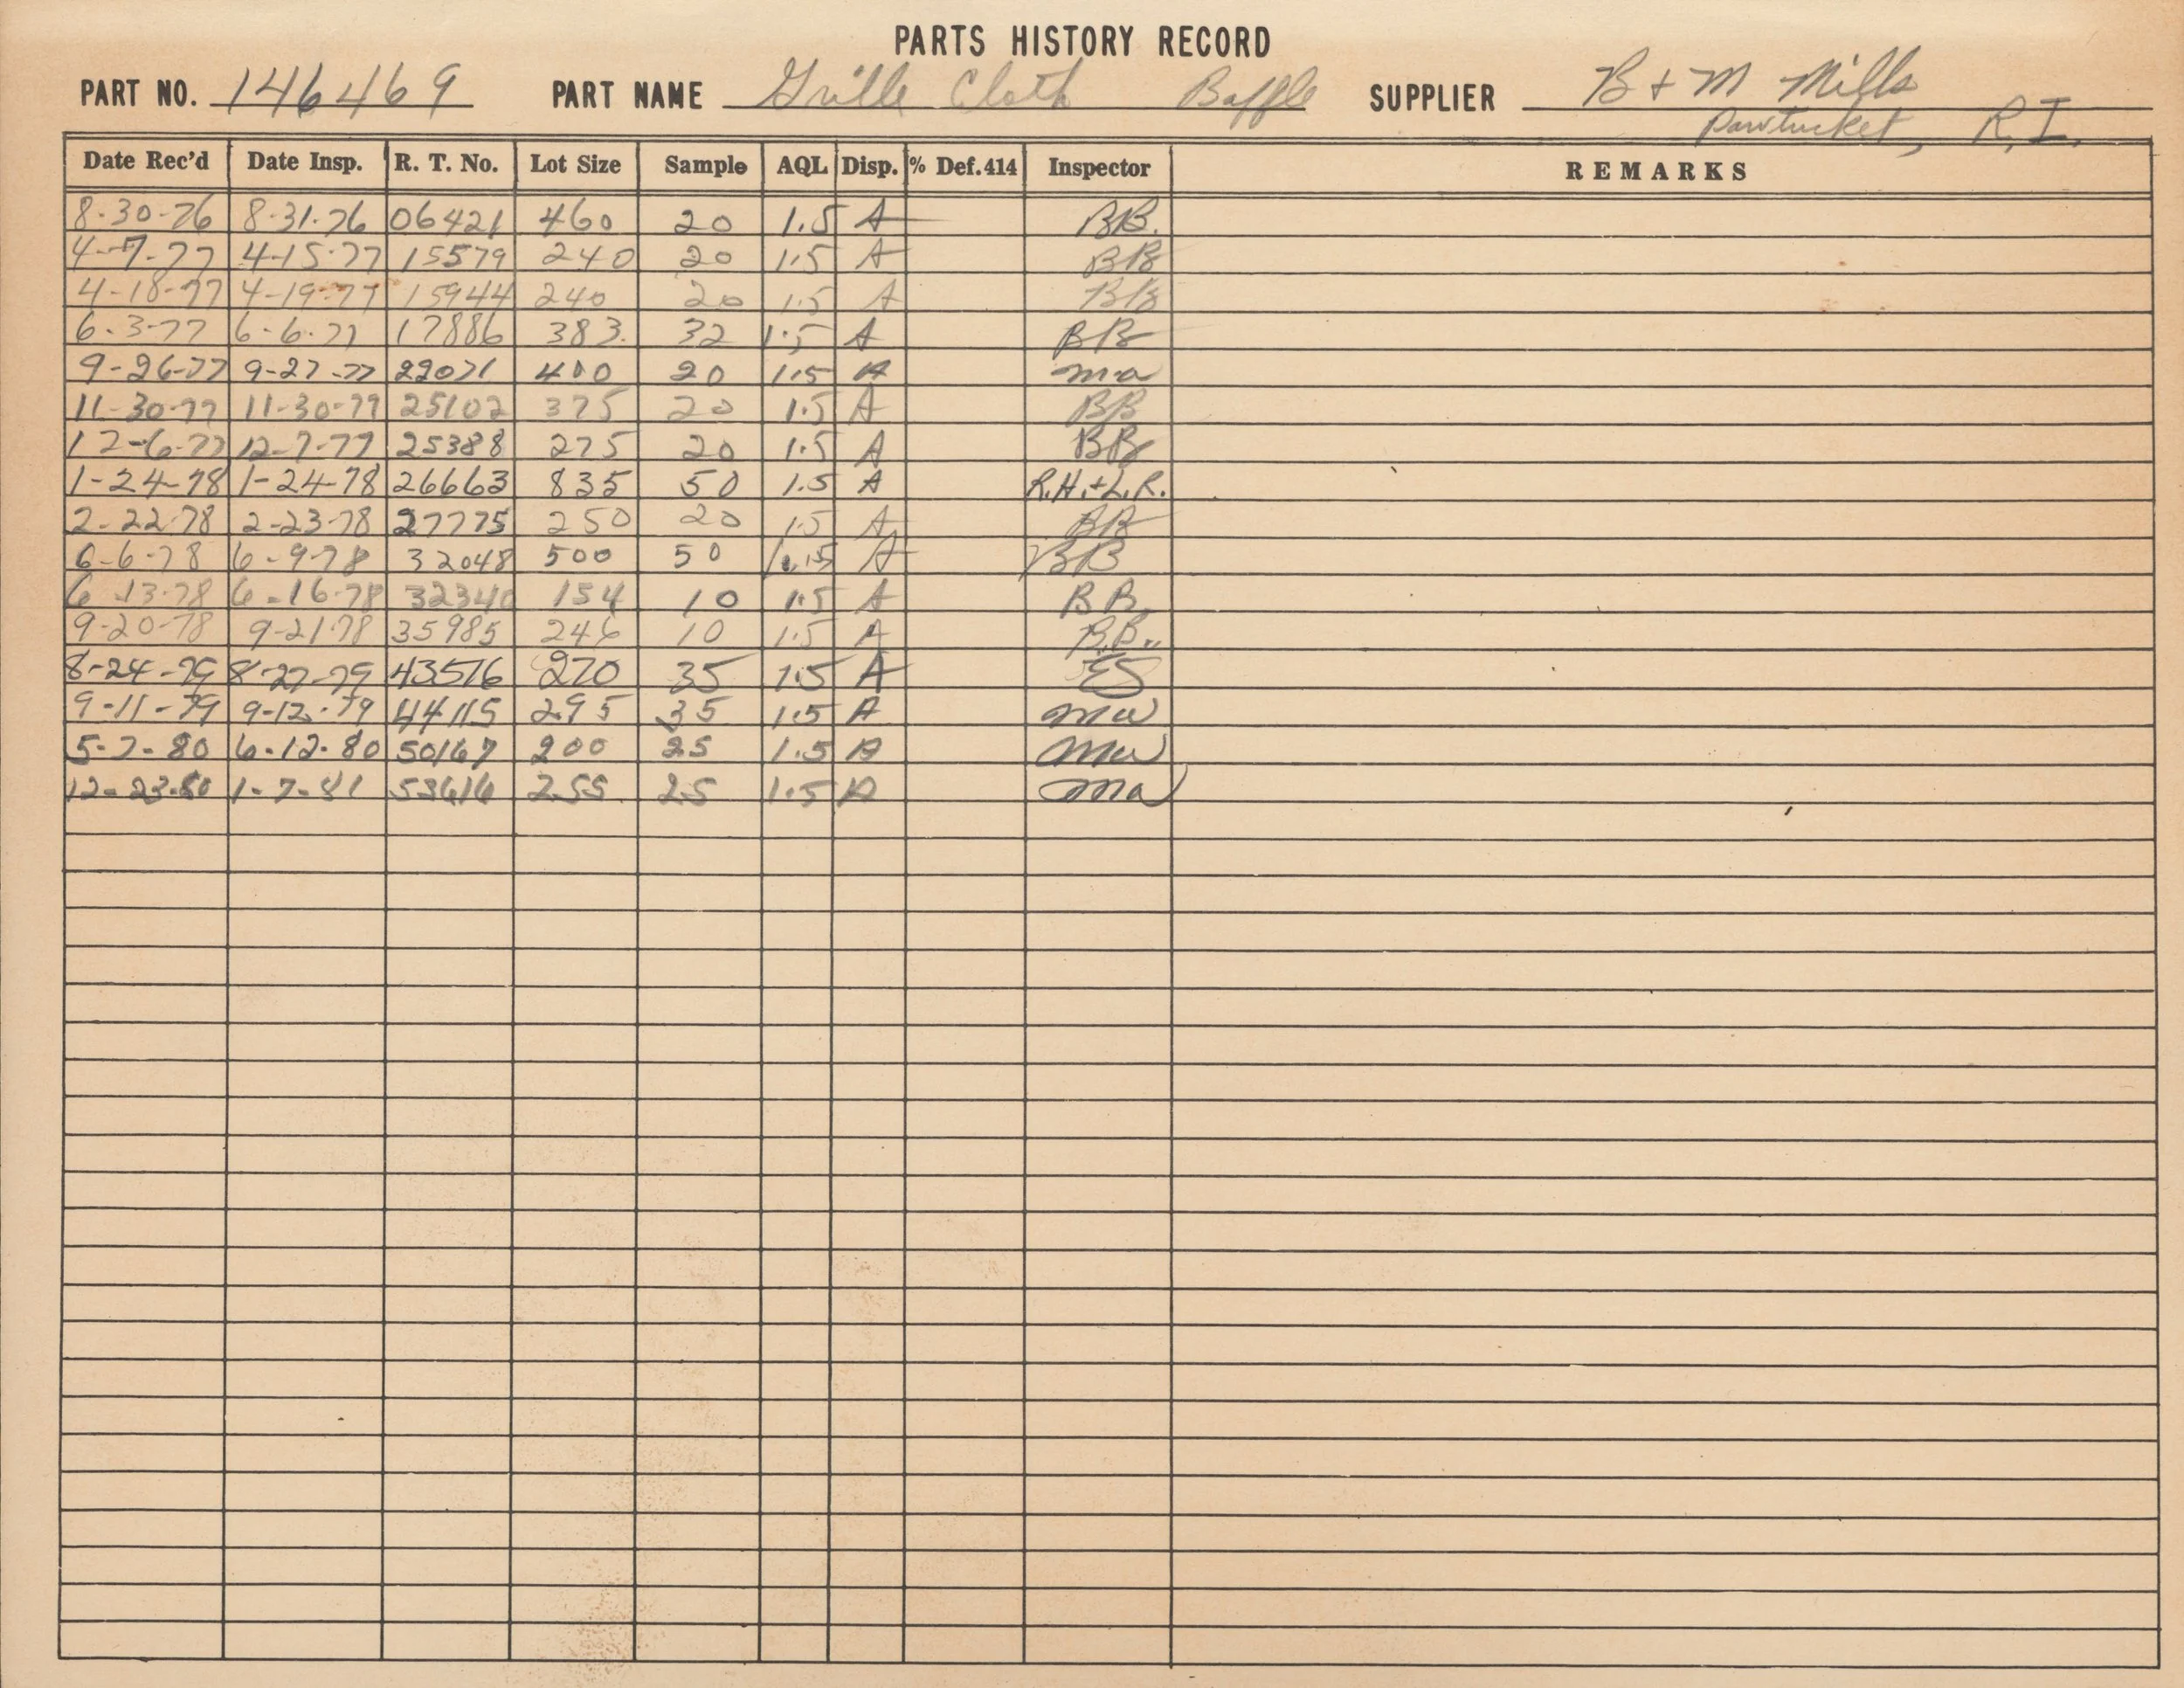 PARTS HISTORY RECORD
PART NO. 146469 PART NAME Grille Cloth Baffle SUPPLIER B + M Mills
Pawtucket, R.I.
Date Rec'd Date Insp. R. T. No. Lot Size Sample AQL Disp. % Def.414 Inspector REMARKS
8-30-76 8-31-76 06421 460 20 1.5 A BB.
4-7-77 4-15-77 15579 240 20 1.5 A BB
4-18-77 4-19-77 15944 240 20 1.5 A BB
6-3-77 6-6-77 17886 383 32 1.5 A BB
9-26-77 9-27-77 22071 400 20 1.5 A ma
11-30-77 11-30-77 25102 375 20 1.5 A BB
12-6-77 12-7-77 25388 275 20 1.5 A BB
1-24-78 1-24-78 26663 835 50 1.5 A R.H.+L.R.
2-22-78 2-23-78 27775 250 20 1.5 A BB
6-6-78 6-9-78 32048 500 50 A BB
6-13-78 6-16-78 32340 154 10 1.5 A BB.
9-20-78 9-21-78 35985 246 10 1.5 A B.B..
8-24-79 8-27-79 43516 270 35 1.5 A
9-11-79 9-12-79 44115 295 35 1.5 A
5-7-80 6-12-80 50167 200 25 1.5 A
12-23-80 1-7-81 53616 255 25 1.5 A ma